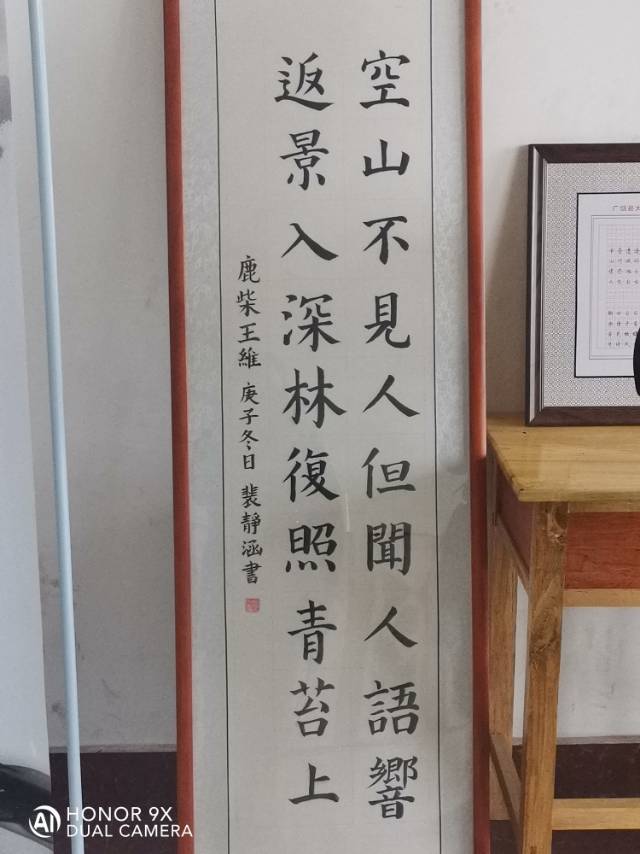 空山不見人但聞人語響
返景入深林復照青苔上
鹿柴王維 庚子冬日 裴靜涵書
HONOR 9X
DUAL CAMERA